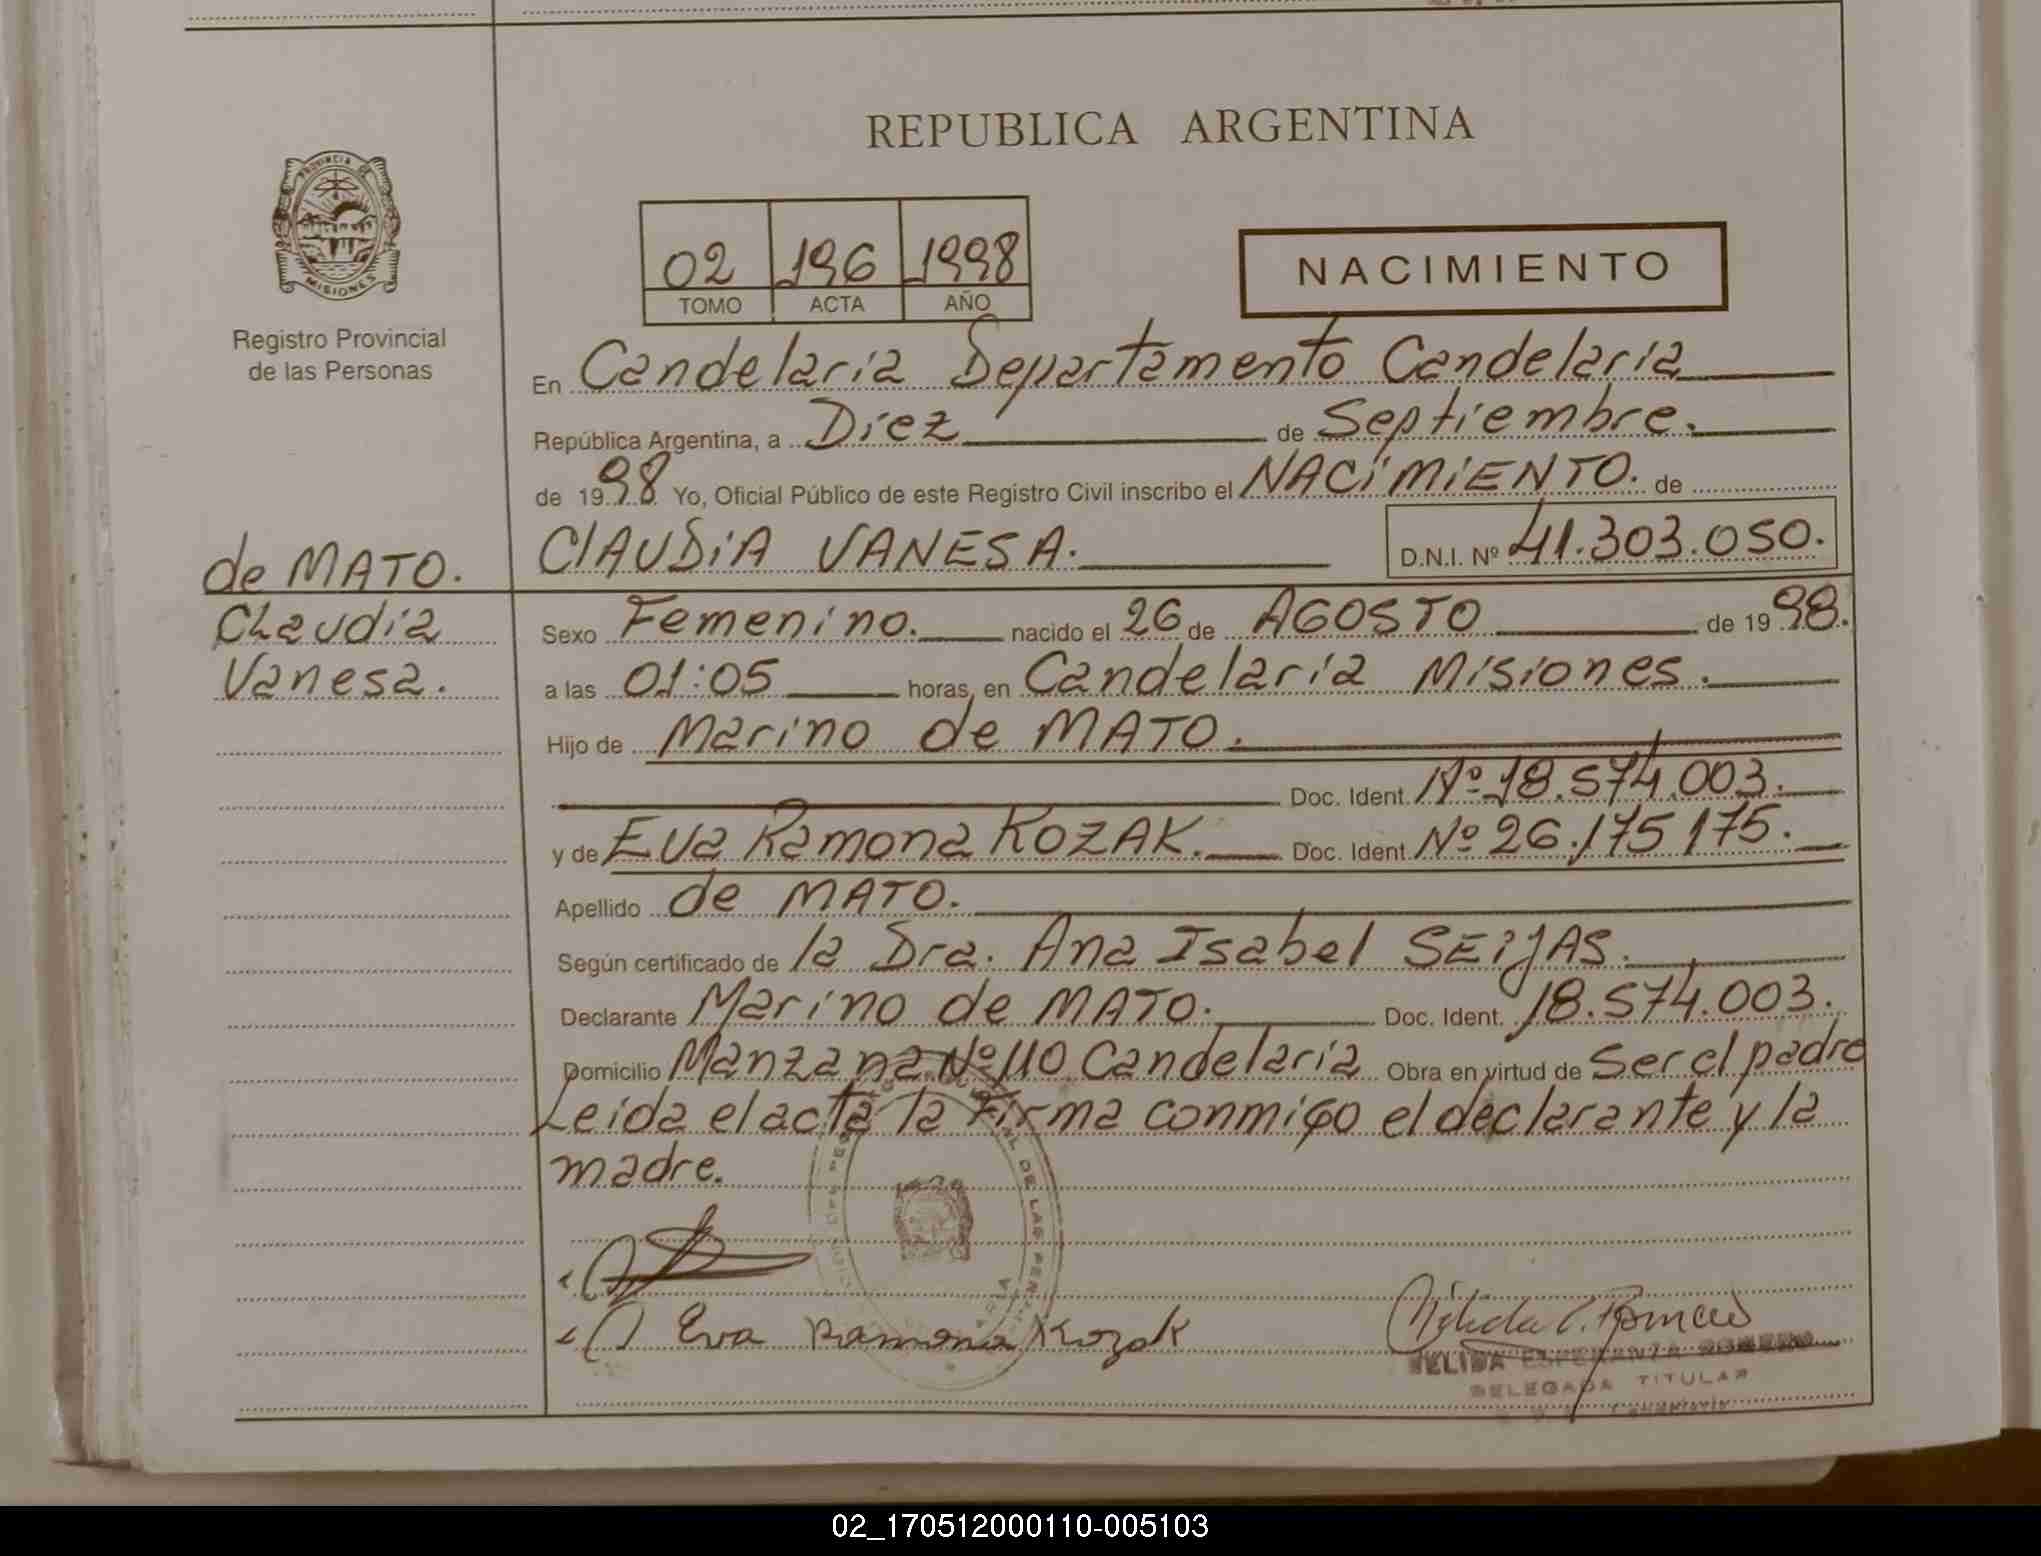 REPUBLICA ARGENTINA
PROVINCIA DE
MISIONES
Registro Provincial
de las Personas
02 196 1998
TOMO ACTA AÑO
NACIMIENTO
En Candelaria Departamento Candelaria
República Argentina, a Diez de Septiembre.
de 1998 Yo, Oficial Público de este Registro Civil inscribo el NACIMIENTO. de
CLAUDIA VANESA. D.N.I. Nº 41.303.050.
de MATO.
Claudia
Vanesa.
Sexo Femenino. nacido el 26 de AGOSTO de 1998.
a las 01:05 horas, en Candelaria Misiones.
Hijo de Marino de MATO.
Doc. Ident. Nº 18.574.003.
y de Eva Ramona KOZAK. Doc. Ident. Nº 26.175175.
Apellido de MATO.
Según certificado de la Dra. Ana Isabel SEIJAS.
Declarante Marino de MATO. Doc. Ident. 18.574.003.
Domicilio Manzana Nº 110 Candelaria Obra en virtud de Ser el padre
Leida el acta la Firma conmigo el declarante y la
madre.
Eva Ramona Kozak
NELIDA ESPERANZA ROMERO
DELEGADA TITULAR
02_170512000110-005103